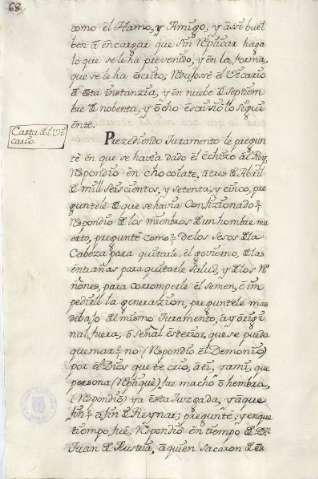 68.
como el Hamo, y Amigo, y assi buel
ber a encargar que sin replicar haga
lo que se le ha prevenido, y en la forma,
que se le ha escrito, Respusose el Vicario
a esta instanzia, y en nuebe de Septiembre
de nobenta, y ocho escrivio lo siguiente.
Carta del Vi
cario
Prezediendo Juramento le pregun
te en que se havia dado el echizo al Rey
Respondio en chocolate, a tres de Abril
de mill seiscientos, y setenta, y cinco, pre
guntele de que se havia confizionado?
Respondio de los miembros de un hombre mu
erto, pregunté como? de los sesos de la
Cabeza para quitarle el govierno, de las
entrañas para quitarle salud, y de los Ri
ñones, para corromperle el semen, e im
pedirle la generazion, preguntele mas
debajo del mismo Juramento, ay origi
nal, fuera, o señal esterior, que se pueda
quemar? no (Respondio el Demonio)
por el Dios que te crio, a ti, y a mi, que
persona (Repliqué) fue macho o hembra,
(Respondio) ya esta Juzgada, y a que
fin? a fin de Reynar; pregunte: y en que
tiempo fue, Respondio en tiempo de Dn
Juan de Austria, a quien sacaron de es